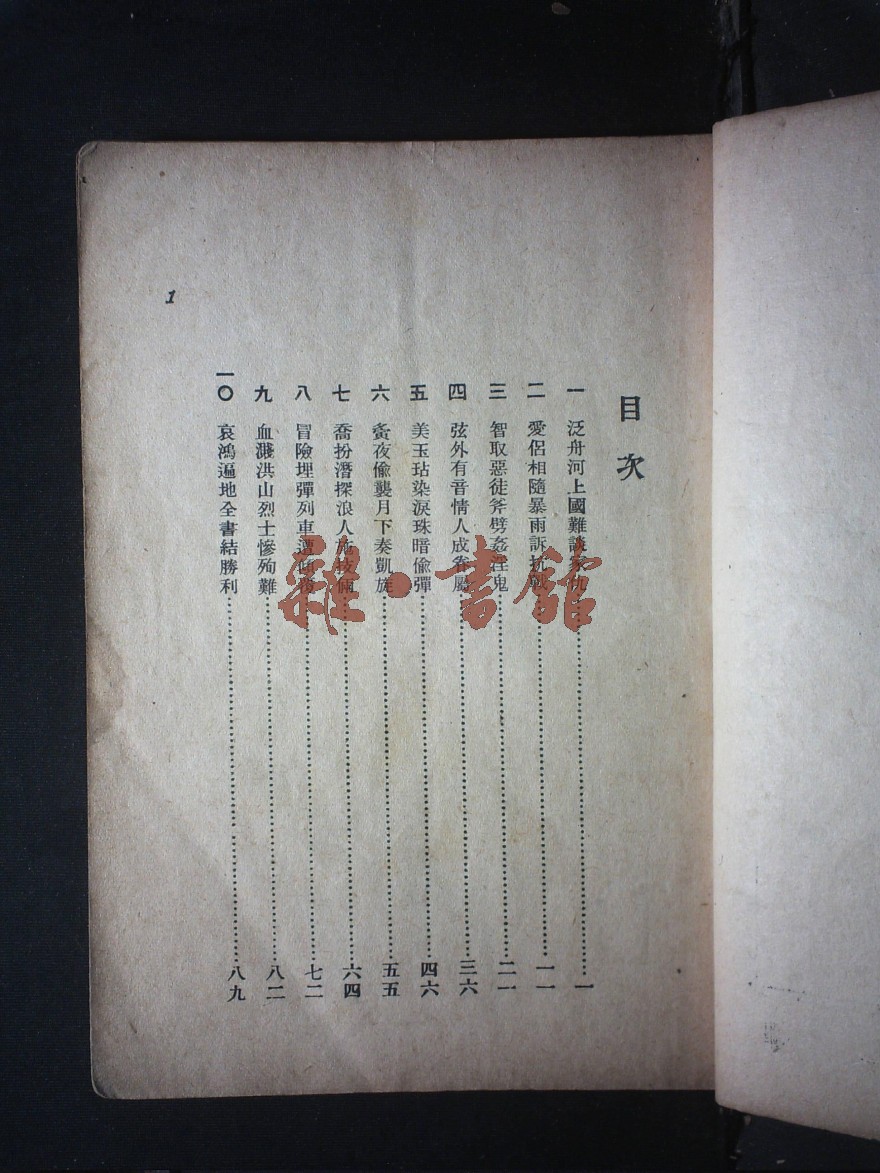 目次
一 泛舟河上國難談家仇 一
二 愛侶相隨暴雨訴抗戰 一一
三 智取惡徒斧劈姦淫鬼 二一
四 弦外有音情人成眷屬 三六
五 美玉玷染淚珠暗偷彈 四六
六 夤夜偷襲月下奏凱旋 五五
七 喬扮潛探浪人施技倆 六四
八 冒險埋彈列車遭傾覆 七二
九 血濺洪山烈士慘殉難 八二
一〇 哀鴻遍地全書結勝利 八九
1
雜·書館